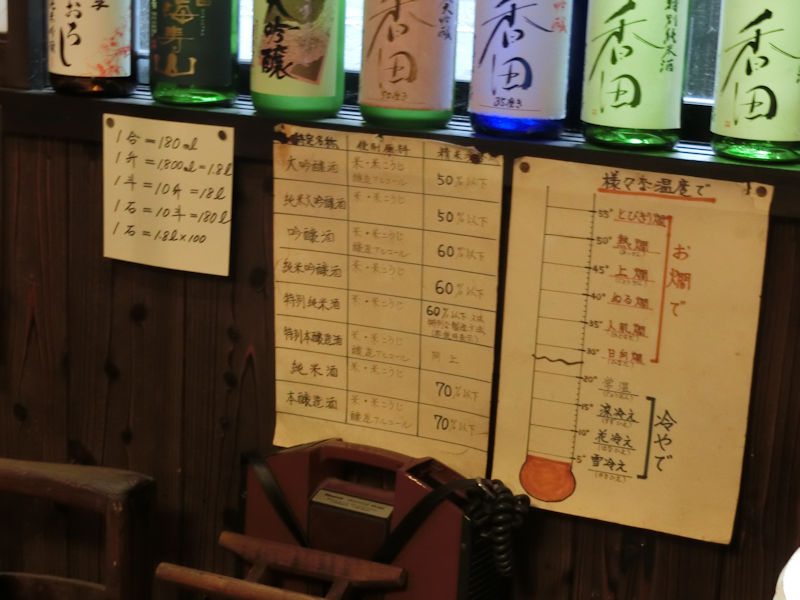 おろし
海寿山
大吟醸
香田
大吟醸
香田
35磨き
香田
特別純米酒
香田
1合=180ml
1升=1,800ml=1.8l
1斗=10升=18l
1石=10斗=180l
1石=1.8l×100
特定名称 使用原料 精米
大吟醸酒 米・米こうじ 醸造アルコール 50%以下
純米大吟醸酒 米・米こうじ 50%以下
吟醸酒 米・米こうじ 醸造アルコール 60%以下
純米吟醸酒 米・米こうじ 60%以下
特別純米酒 米・米こうじ 60%以下又は
特別な製造方法
(要説明表示)
特別本醸造酒 米・米こうじ 醸造アルコール 同上
純米酒 米・米こうじ 70%以下
本醸造酒 米・米こうじ 醸造アルコール 70%以下
様々な温度で
55° とびきり燗
50° 熱燗
45° 上燗
40° ぬる燗
35° 人肌燗
30° 日向燗
お燗で
20° 常温
15° 涼冷え
10° 花冷え
5° 雪冷え
冷やで